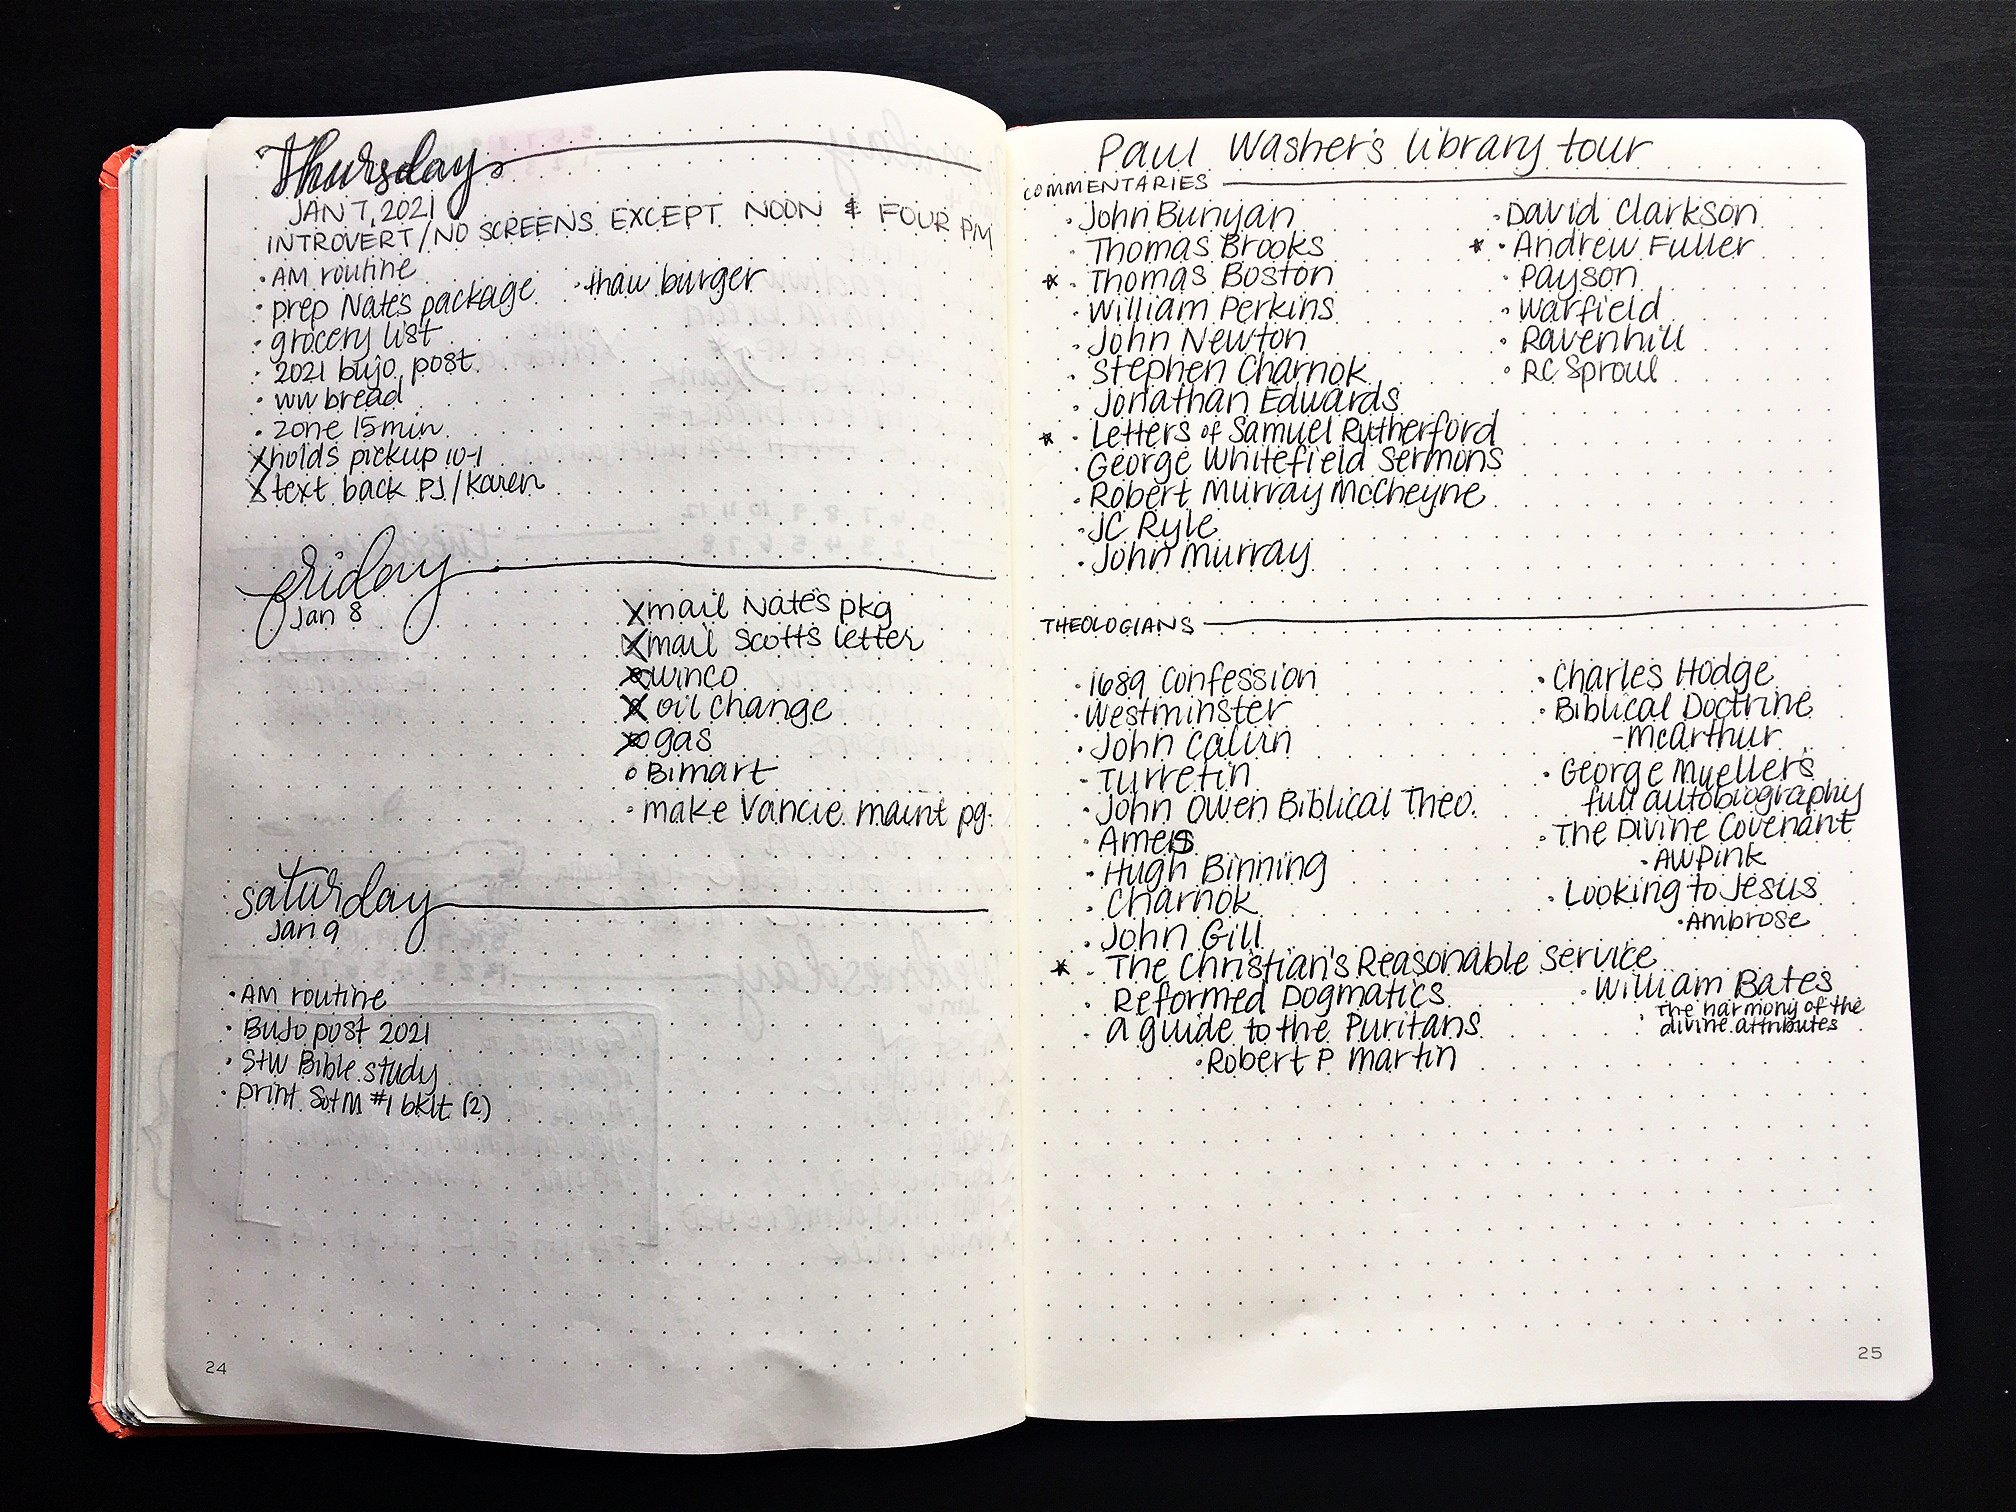 Thursday
JAN 7, 2021
INTROVERT/NO SCREENS EXCEPT NOON & FOUR PM
· AM routine
· prep Nate's package · thaw burger
· grocery list
· 2021 bujo post
· ww bread
· zone 15 min
X holds pickup 10-1
X text back PJ/Karen
Friday
Jan 8
X mail Nate's pkg
X mail Scott's letter
X winco
X oil change
X gas
· Bimart
· make Vancie maint pg.
Saturday
Jan 9
· AM routine
· BuJo post 2021
· StW Bible study
· print SotM #1 bklt (2)
24
Paul Washer's library tour
COMMENTARIES
· John Bunyan
· Thomas Brooks
* · Thomas Boston
· William Perkins
· John Newton
· Stephen Charnok
· Jonathan Edwards
* · Letters of Samuel Rutherford
· George Whitefield Sermons
· Robert Murray McCheyne
· JC Ryle
· John Murray
· David Clarkson
* · Andrew Fuller
· Payson
· Warfield
· Ravenhill
· RC Sproul
THEOLOGIANS
· 1689 Confession
· Westminster
· John Calvin
· Turretin
· John Owen Biblical Theo.
· Ames
· Hugh Binning
· Charnok
· John Gill
* · The Christian's Reasonable Service
· Reformed Dogmatics
· A guide to the Puritans
· Robert P Martin
· Charles Hodge
· Biblical Doctrine
- McArthur
· George Mueller's
full autobiography
· The Divine Covenant
· AW Pink
· Looking to Jesus
· Ambrose
· William Bates
· The harmony of the
divine attributes
25